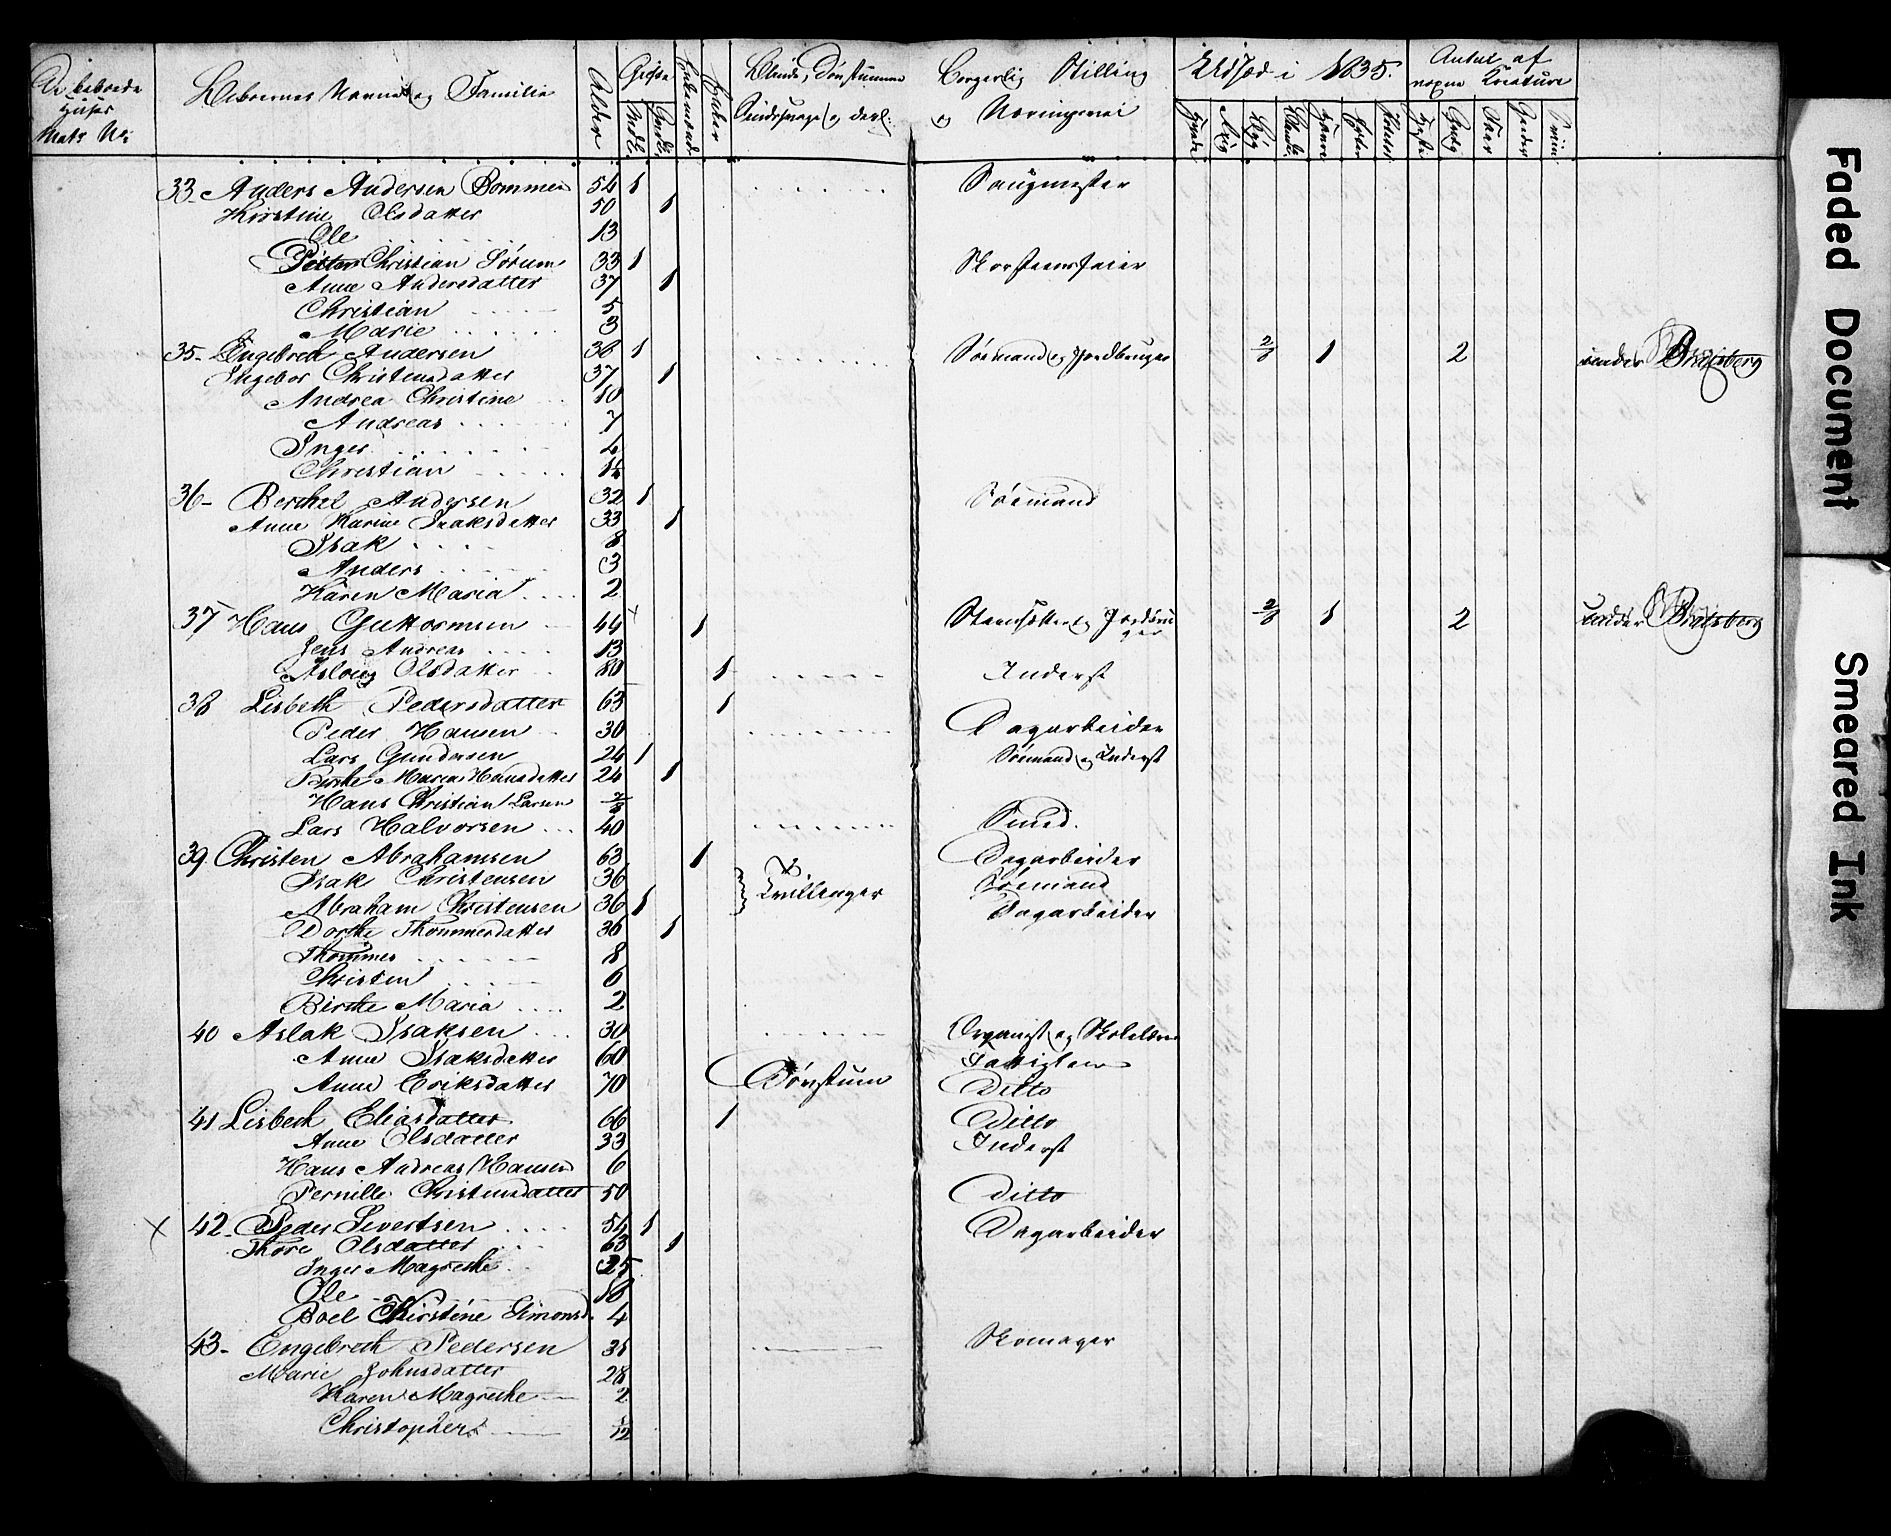 De beboede Huses Matr No:
Beboernes Navne og Familie
Alder
Gifte
Mdk.
Qvdk.
Enkemænd
Enker
Blinde, Døvstumme
Sindssvage og derl:
Borgerlig Stilling
og Næringsvei
Udsæd i 1835.
Hvede
Rug
Byg
Havre
Erter
Poteter
Antal af
voxne Kreature
Heste
Qvæg
Faar
Gjeder
Sviin
33. Anders Andersen Bommen 54 1 Saugmester
Kirstine Olsdatter 50 1
Ole 13
Petter Christian Sørum 33 1 Skorsteensfeier
Anne Andersdatter 37 1
Christian 5
Marie 3
35- Engebret Andersen 38 1 Søemand og Jordbruger 2/8 1 2 under Bratsberg
Ingebor Christensdatter 37 1
Andrea Christine 10
Andreas 7
Inger 4
Christian 14
36- Berthel Andersen 32 1 Søemand
Anne Karine Isaksdatter 33 1
Isak 8
Anders 3
Karen Maria 2
37 Hans Guttormsen 44 1 Jordbruger 2/8 1 2 under Bratsberg
Jens Andreas 13
Asloug Olsdatter 80 1 Inderst
38 Lisbeth Pedersdatter 63 1
Peder Hansen 30 Dagarbeider
Lars Gundersen 24 1 Søemand og Inderst
Birthe Maria Hansdatter 24 1
Hans Christian Larsen
Lars Halvorsen 40 Smed.
39. Christen Abrahamsen 63 1 Dagarbeider
Isak Christensen 36 Tvillinger Søemand
Abraham Christensen 36 1 Dagarbeider
Dorthe Thommesdatter 36 1
Thommes 8
Christen 6
Birthe Maria 2
40 Aslak Isaksen 30 Organist og Skolelærer
Anne Isaksdatter 60 Fattiglem
Anne Eriksdatter 70 Døvstum Ditto
41 Lisbeth Eliasdatter 66 1 Ditto
Anne Olsdatter 33 Inderst
Hans Andreas Hansen 6
Pernille Christensdatter 50 Ditto
X 42- Peder Sivertsen 54 1 Dagarbeider
Thore Olsdatter 63 1
Inger Magrethe 25
Ole 18
Boel Kirstine Simonsd. 4
43- Engebreth Pedersen 31 Skomager
Marie Johnsdatter 28
Karen Magrethe 2
Christopher 1/12
Faded Document
Smeared Ink